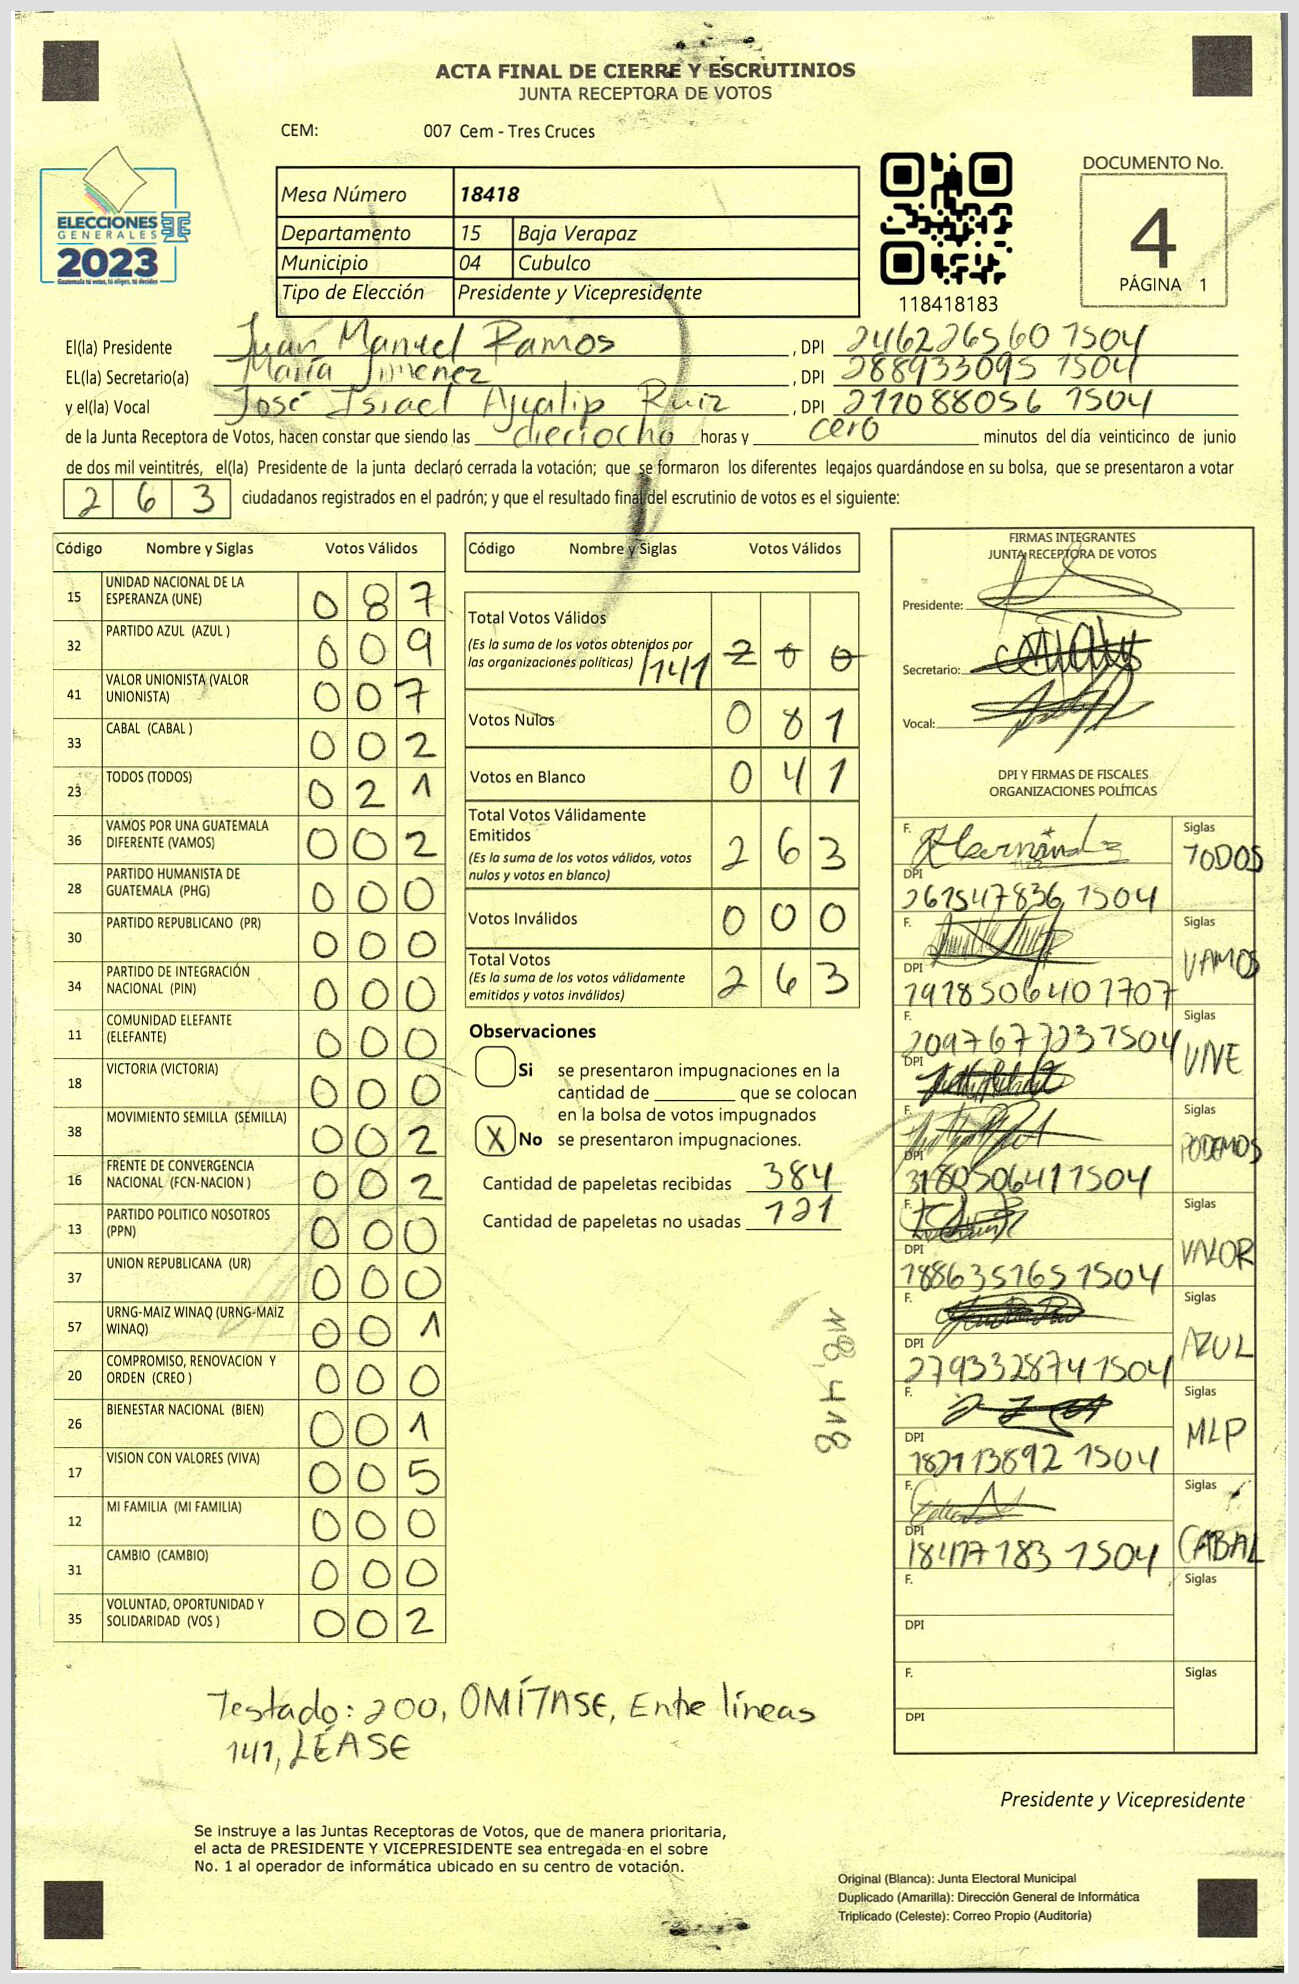 ACTA FINAL DE CIERRE Y ESCRUTINIOS
JUNTA RECEPTORA DE VOTOS
CEM: 007 Cem - Tres Cruces
ELECCIONES
GENERALES
2023
Guatemala tú votas, tú eliges, tú decides
Mesa Número 18418
Departamento 15 Baja Verapaz
Municipio 04 Cubulco
Tipo de Elección Presidente y Vicepresidente
118418183
DOCUMENTO No.
4
PÁGINA 1
El(la) Presidente Juan Manuel Ramos , DPI 246226560 1504
EL(la) Secretario(a) María Jimenez , DPI 288933095 1504
y el(la) Vocal José Israel Ajualip Ruiz , DPI 211088056 1504
de la Junta Receptora de Votos, hacen constar que siendo las dieciocho horas y cero minutos del día veinticinco de junio
de dos mil veintitrés, el(la) Presidente de la junta declaró cerrada la votación; que se formaron los diferentes legajos guardándose en su bolsa, que se presentaron a votar
263 ciudadanos registrados en el padrón; y que el resultado final del escrutinio de votos es el siguiente:
Código Nombre y Siglas Votos Válidos
15 UNIDAD NACIONAL DE LA ESPERANZA (UNE) 087
32 PARTIDO AZUL (AZUL ) 009
41 VALOR UNIONISTA (VALOR UNIONISTA) 007
33 CABAL (CABAL ) 002
23 TODOS (TODOS) 021
36 VAMOS POR UNA GUATEMALA DIFERENTE (VAMOS) 002
28 PARTIDO HUMANISTA DE GUATEMALA (PHG) 000
30 PARTIDO REPUBLICANO (PR) 000
34 PARTIDO DE INTEGRACIÓN NACIONAL (PIN) 000
11 COMUNIDAD ELEFANTE (ELEFANTE) 000
18 VICTORIA (VICTORIA) 000
38 MOVIMIENTO SEMILLA (SEMILLA) 002
16 FRENTE DE CONVERGENCIA NACIONAL (FCN-NACION ) 002
13 PARTIDO POLITICO NOSOTROS (PPN) 000
37 UNION REPUBLICANA (UR) 000
57 URNG-MAIZ WINAQ (URNG-MAIZ WINAQ) 001
20 COMPROMISO, RENOVACION Y ORDEN (CREO ) 000
26 BIENESTAR NACIONAL (BIEN) 001
17 VISION CON VALORES (VIVA) 005
12 MI FAMILIA (MI FAMILIA) 000
31 CAMBIO (CAMBIO) 000
35 VOLUNTAD, OPORTUNIDAD Y SOLIDARIDAD (VOS ) 002
Código Nombre y Siglas Votos Válidos
Total Votos Válidos
(Es la suma de los votos obtenidos por
las organizaciones políticas) /141/ 200
Votos Nulos 081
Votos en Blanco 041
Total Votos Válidamente
Emitidos
(Es la suma de los votos válidos, votos
nulos y votos en blanco) 263
Votos Inválidos 000
Total Votos
(Es la suma de los votos válidamente
emitidos y votos inválidos) 263
Observaciones
Si se presentaron impugnaciones en la
cantidad de ________ que se colocan
en la bolsa de votos impugnados
X No se presentaron impugnaciones.
Cantidad de papeletas recibidas 384
Cantidad de papeletas no usadas 121
18,418
FIRMAS INTEGRANTES
JUNTA RECEPTORA DE VOTOS
Presidente:
Secretario:
Vocal:
DPI Y FIRMAS DE FISCALES
ORGANIZACIONES POLÍTICAS
F. Hernández Siglas TODOS
DPI 261547836 1504
F. Siglas VAMOS
DPI 1918506401707
F. Siglas VIVE
2097677231504
DPI
F. Siglas PODEMOS
DPI 3180506411504
F. Siglas VALOR
DPI 1886351651504
F. Siglas AZUL
DPI 2793328741504
F. Siglas MLP
DPI 182113892 1504
F. Siglas CABAL
DPI 18417183 1504
F. Siglas
DPI
F. Siglas
DPI
Testado: 200, OMÍTASE, Entre líneas
141, LÉASE
Presidente y Vicepresidente
Se instruye a las Juntas Receptoras de Votos, que de manera prioritaria,
el acta de PRESIDENTE Y VICEPRESIDENTE sea entregada en el sobre
No. 1 al operador de informática ubicado en su centro de votación.
Original (Blanca): Junta Electoral Municipal
Duplicado (Amarilla): Dirección General de Informática
Triplicado (Celeste): Correo Propio (Auditoría)